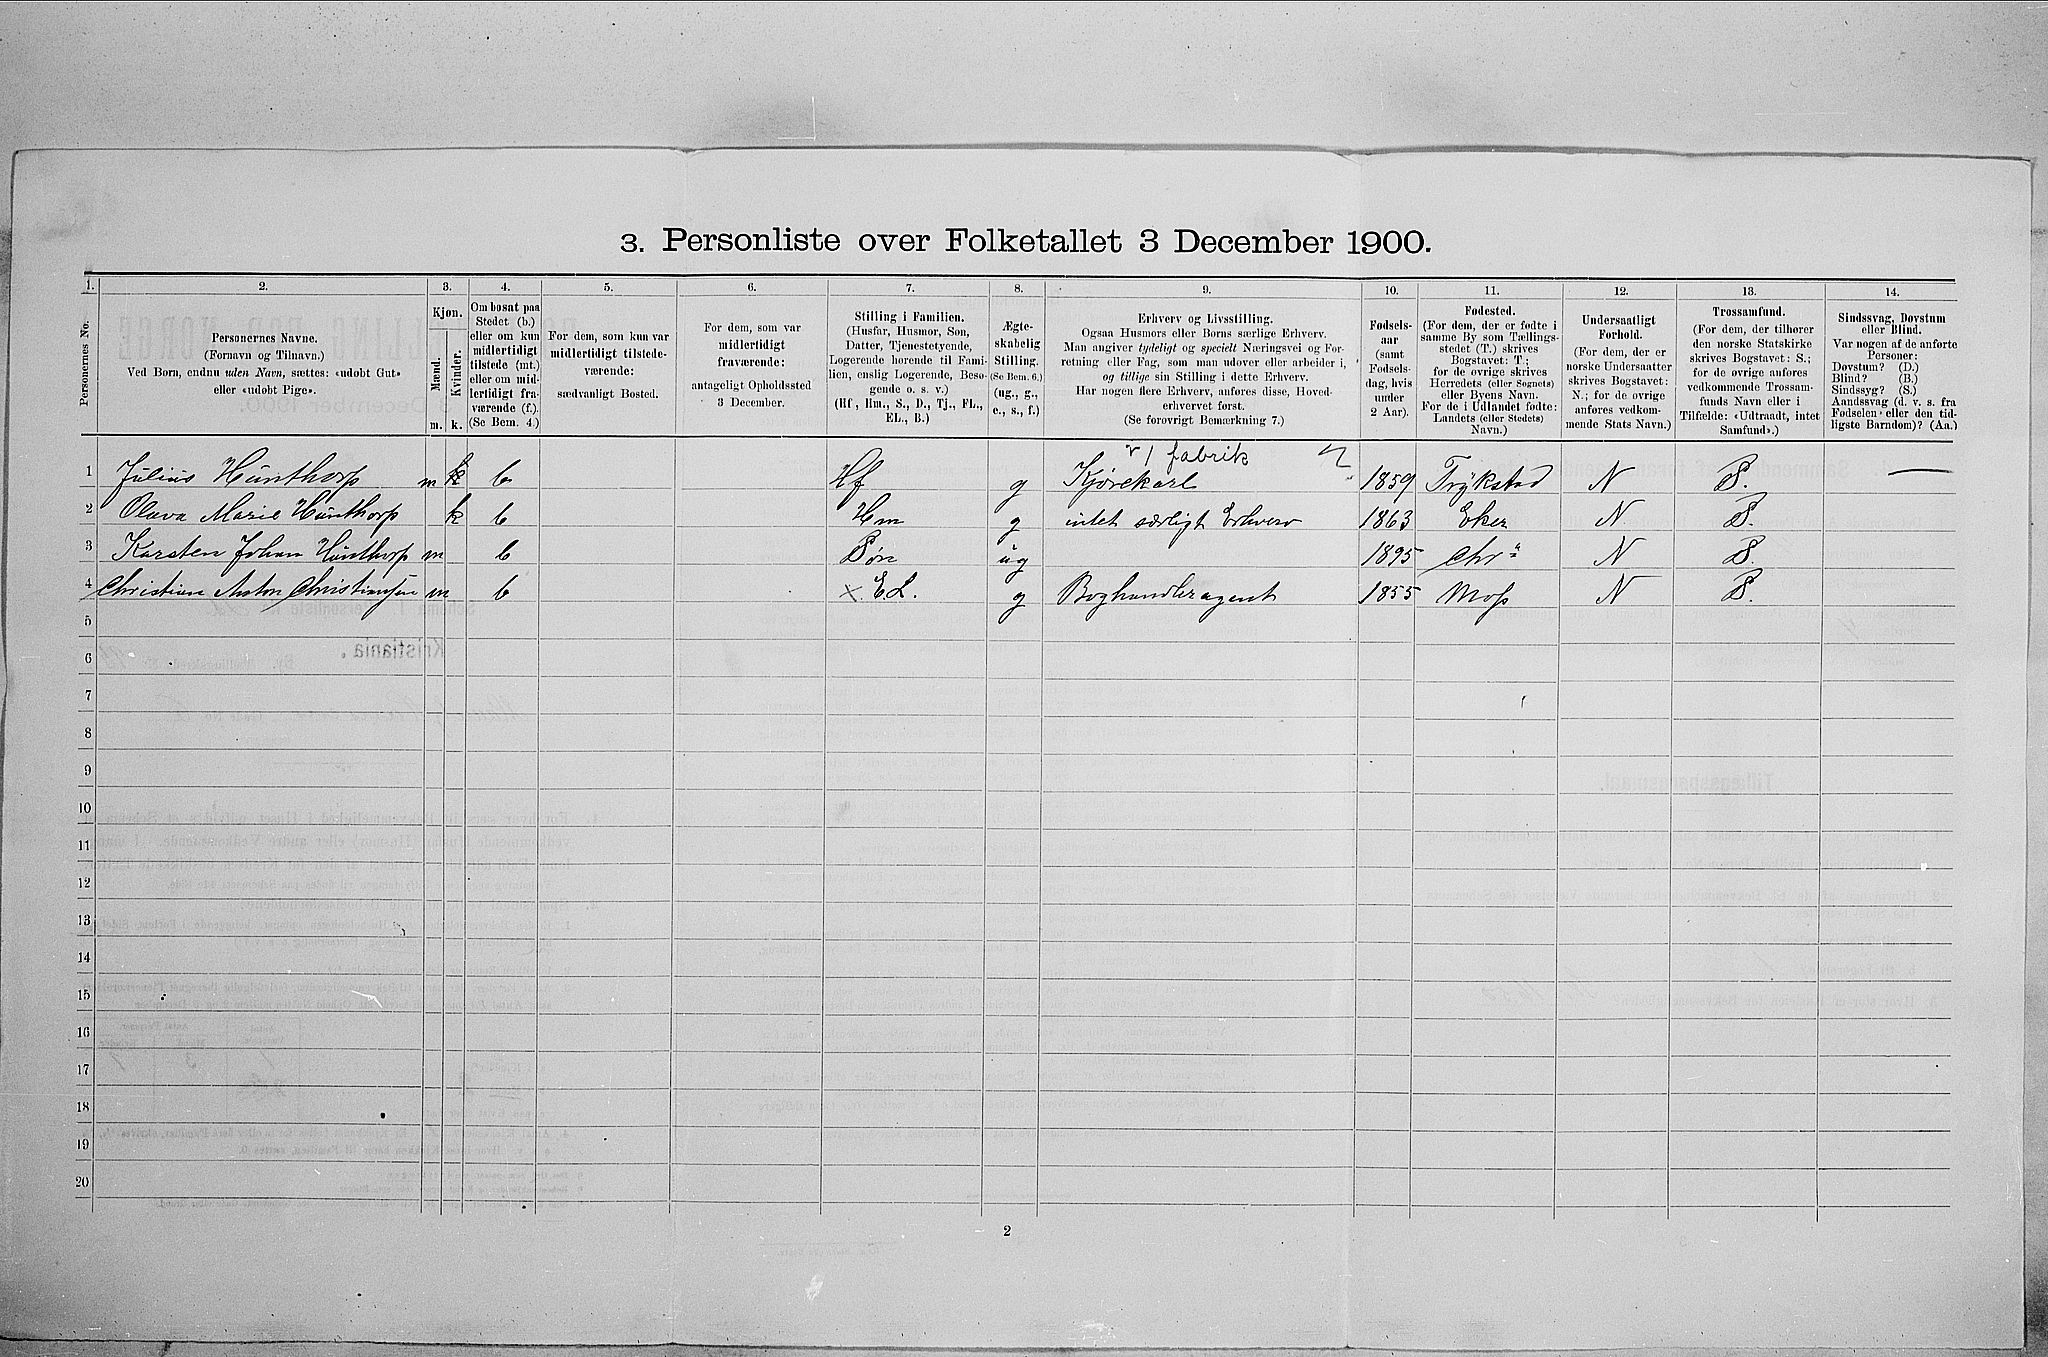 3. Personliste over Folketallet 3 December 1900.
1. 2. 3. 4. 5. 6. 7. 8. 9. 10. 11. 12. 13. 14.
Personernes No.
Personernes Navne.
(Fornavn og Tilnavn.)
Ved Born, endnu uden Navn, sættes: «udobt Gut»
eller «udobt Pige».
Kjøn.
Mænd.
Kvinder.
m. k.
Om bosat paa
Stedet (b.)
eller om kun
midlertidigt
tilstede (mt.)
eller om mid-
lertidigt fra-
værende (f.).
(Se Bem. 4.)
For dem, som kun var
midlertidigt tilstede-
værende:
sædvanligt Bosted.
For dem, som var
midlertidigt
fraværende:
antageligt Opholdssted
3 December.
Stilling i Familien.
(Husfar, Husmor, Son,
Datter, Tjenestetyende,
Logerende horende til Fami-
lien, enslig Logerende, Beso-
gende o. s. v.)
(Hf, Hm., S., D., Tj., FL.,
EL., B.)
Ægte-
skabelig
Stilling.
(Se Bem. 6.)
(ug., g.,
e., s., f.)
Erhverv og Livsstilling.
Ogsaa Husmors eller Børns særlige Erhverv.
Man angiver tydeligt og specielt Næringsvei og For-
retning eller Fag, som man udover eller arbeider i,
og tillige sin Stilling i dette Erhverv.
Har nogen flere Erhverv, anføres disse, Hoved-
erhvervet først.
(Se forøvrigt Bemærkning 7.)
Fødsels-
aar
(samt
Fødsels-
dag, hvis
under
2 Aar).
Fødested.
(For dem, der er fødte i
samme By som Tællings-
stedet (T.) skrives
Bogstavet: T;
for de øvrige skrives
Herredets (eller Sognets)
eller Byens Navn.
For de i Udlandet fødte:
Landets (eller Stedets)
Navn.)
Undersaatligt
Forhold.
(For dem, der er
norske Undersaatter
skrives Bogstavet:
N.; for de øvrige
anføres vedkom-
mende Stats Navn.)
Trossamfund.
(For dem, der tilhører
den norske Statskirke
skrives Bogstavet: S.;
for de øvrige anføres
vedkommende Trossam-
funds Navn eller i
Tilfælde: «Udtraadt, intet
Samfund».)
Sindssvag, Døvstum
eller Blind.
Var nogen af de anførte
Personer:
Døvstum? (D.)
Blind? (B.)
Sindssyg? (S.)
Aandssvag (d. v. s. fra
Fødselen eller den tid-
ligste Barndom)? (Aa.)
v / fabrik
1 Julius Hünthorp m k b Hf g Kjørekarl 1859 Trykstad N S.
2 Olava Marie Hünthorp k b Hm g intet særligt Erhverv 1863 Eker N S.
3 Karsten Johan Hünthorp m b Søn ug 1895 Chr a N S.
4 Christian Anton Christiansen m b x EL. g Boghandleragent 1855 Moss N S.
5
6
7
8
9
10
11
12
13
14
15
16
17
18
19
20
2